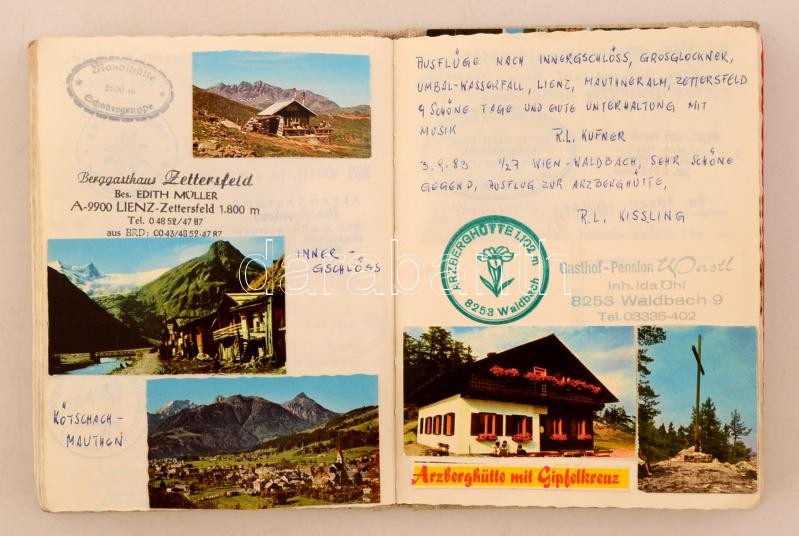 Manolhütte
2200 m
Schobergruppe
Berggasthaus Zettersfeld
Bes. EDITH MÜLLER
A-9900 LIENZ-Zettersfeld 1.800 m
Tel. 0 48 52/47 87
aus BRD: 00 43/48 52-47 87
INNER-
GSCHLÖSS
KÖTSCHACH-
MAUTHEN
AUSFLÜGE NACH INNERGSCHLÖSS, GROSGLOCKNER,
UMBAL-WASSERFALL, LIENZ, MAUTHNERALM, ZETTERSFELD
9 SCHÖNE TAGE UND GUTE UNTERHALTUNG MIT
MUSIK
R.L. KUFNER
3.9.83 1/27 WIEN-WALDBACH, SEHR SCHÖNE
GEGEND, AUSFLUG ZUR ARZBERGHÜTTE,
R.L. KISSLING
ARZBERGHÜTTE 1.102 m
8253 Waldbach
Gasthof-Pension
Inh. Ida Öhl
8253 Waldbach 9
Tel. 03336-402
Arzberghütte mit Gipfelkreuz
darabanth